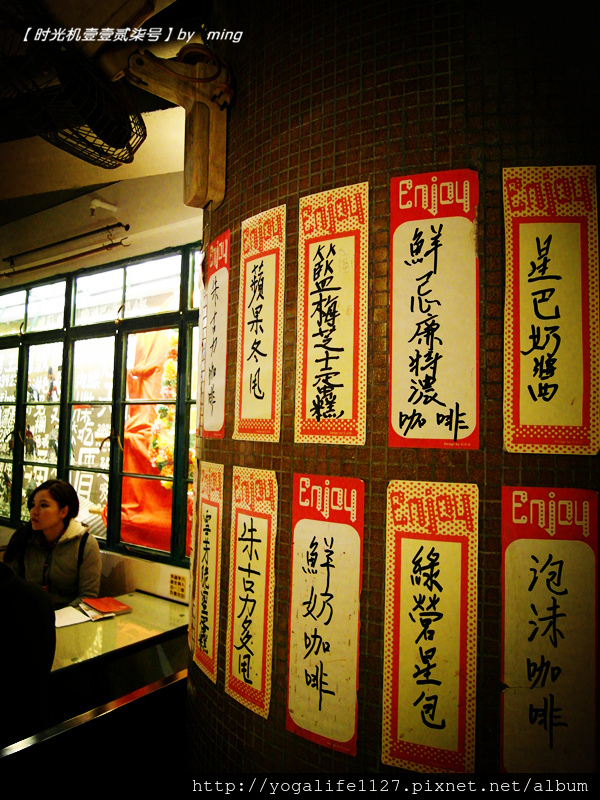 【时光机壹壹贰柒号】by ming
Enjoy
朱古力咖啡
Enjoy
蘋果冬甩
Enjoy
籃梅芝士蛋糕
Enjoy
鮮忌廉特濃咖啡
Enjoy
星巴奶醬
Enjoy
Enjoy
朱古力多甩
Enjoy
鮮奶咖啡
Enjoy
綠營星包
Enjoy
泡沫咖啡
http://yogalife1127.pixnet.net/album